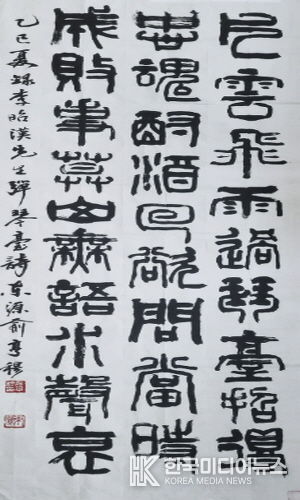 片雲飛雨過琴臺招得
忠魂酹酒回欲問當時
成敗事暮山無語水聲哀
乙巳夏錄李昭漢先生彈琴臺詩東源俞亨
HK 한국미디어뉴스
KOREA MEDIA NEWS